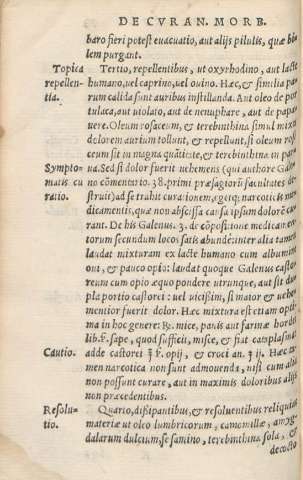 DE CVRAN. MORB.
baro fieri potest euacuatio, aut alijs pilulis, quæ bi-
lem purgant.
Topica
repellen-
tia.
Tertio, repellentibus, ut oxyrhodino, aut lacte
humano, uel caprino, uel ouino. Hæc, & similia pa-
rum calida sunt auribus instillanda. Aut oleo de por
tulaca, aut uiolaio, aut de nenuphare, aut de papa-
uere. Oleum rosaceum, & terebinthina simul mixta
dolorem aurium tollunt, & repellunt, si oleum ros-
ceum sit in magna quãtitate, & terebinthina in par-
Sympto-
matis cu
ratio.
ua. Sed si dolor fuerit uehemens (qui authore Gale-
no cõmentario. 38. primi præsagiorũ facultates de-
struit) ad se trahit curationem, egetq; narcoticis me-
dicamentis, quæ non abscissa causa ipsum dolorẽ cu-
rant. De his Galenus. 3. de cõpositione medicam
torum secundum locos satis abunde: inter alia tamen
laudat mixturam ex lacte humano cum albumine
oui, & pauco opio: laudat quoque Galenus castor
reum cum opio æquo pondere utrunque, aut sit du-
pla portio castorei: uel uicissim, si mator & uehe-
mentior fuerit dolor. Hæc mixtura est etiam opti-
ma in hoc genere: ℞. micæ, panis aut farinæ hordei
lib. ß. sapæ, quod sufficit, misce, & fiat cataplasma
Cautio.
adde castorei ʒ ß. opij, & croci an. ʒ ij. Hæc ta-
men narcotica non sunt admouenda, nisi cum alia
non possunt curare, aut in maximis doloribus alijs
non præcedentibus.
Resolu-
tio.
Quarto, dissipantibus, & resoluentibus reliquias
materiæ ut oleo lumbricorum, camomillæ, amyg-
dalarum dulcium, sesamino, terebinthina sola, &
decocto